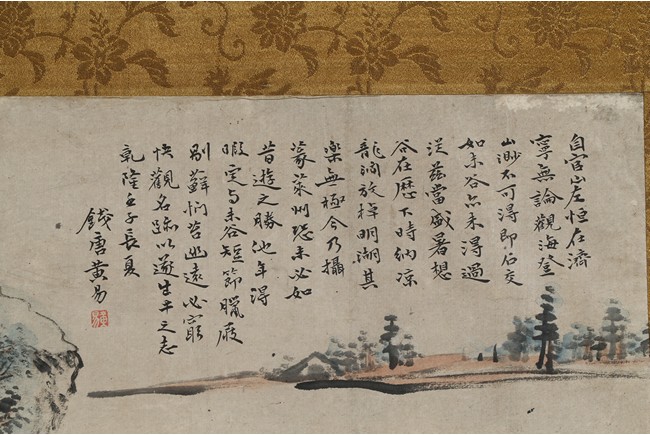 自宦山左恒在濟
寧無論觀海登
山渺不可得即石交
如未谷亦未得過
從茲當盛暑想
谷在歷下時納凉
龍洞放棹明湖其
樂無極今乃攝
篆萊州恐未必如
昔遊之勝他年得
暇定與未谷短筇臘屐
剔蘚捫苔幽遠必窮
快觀名跡以遂生平之志
乾隆壬子長夏
錢唐黃易
黃易